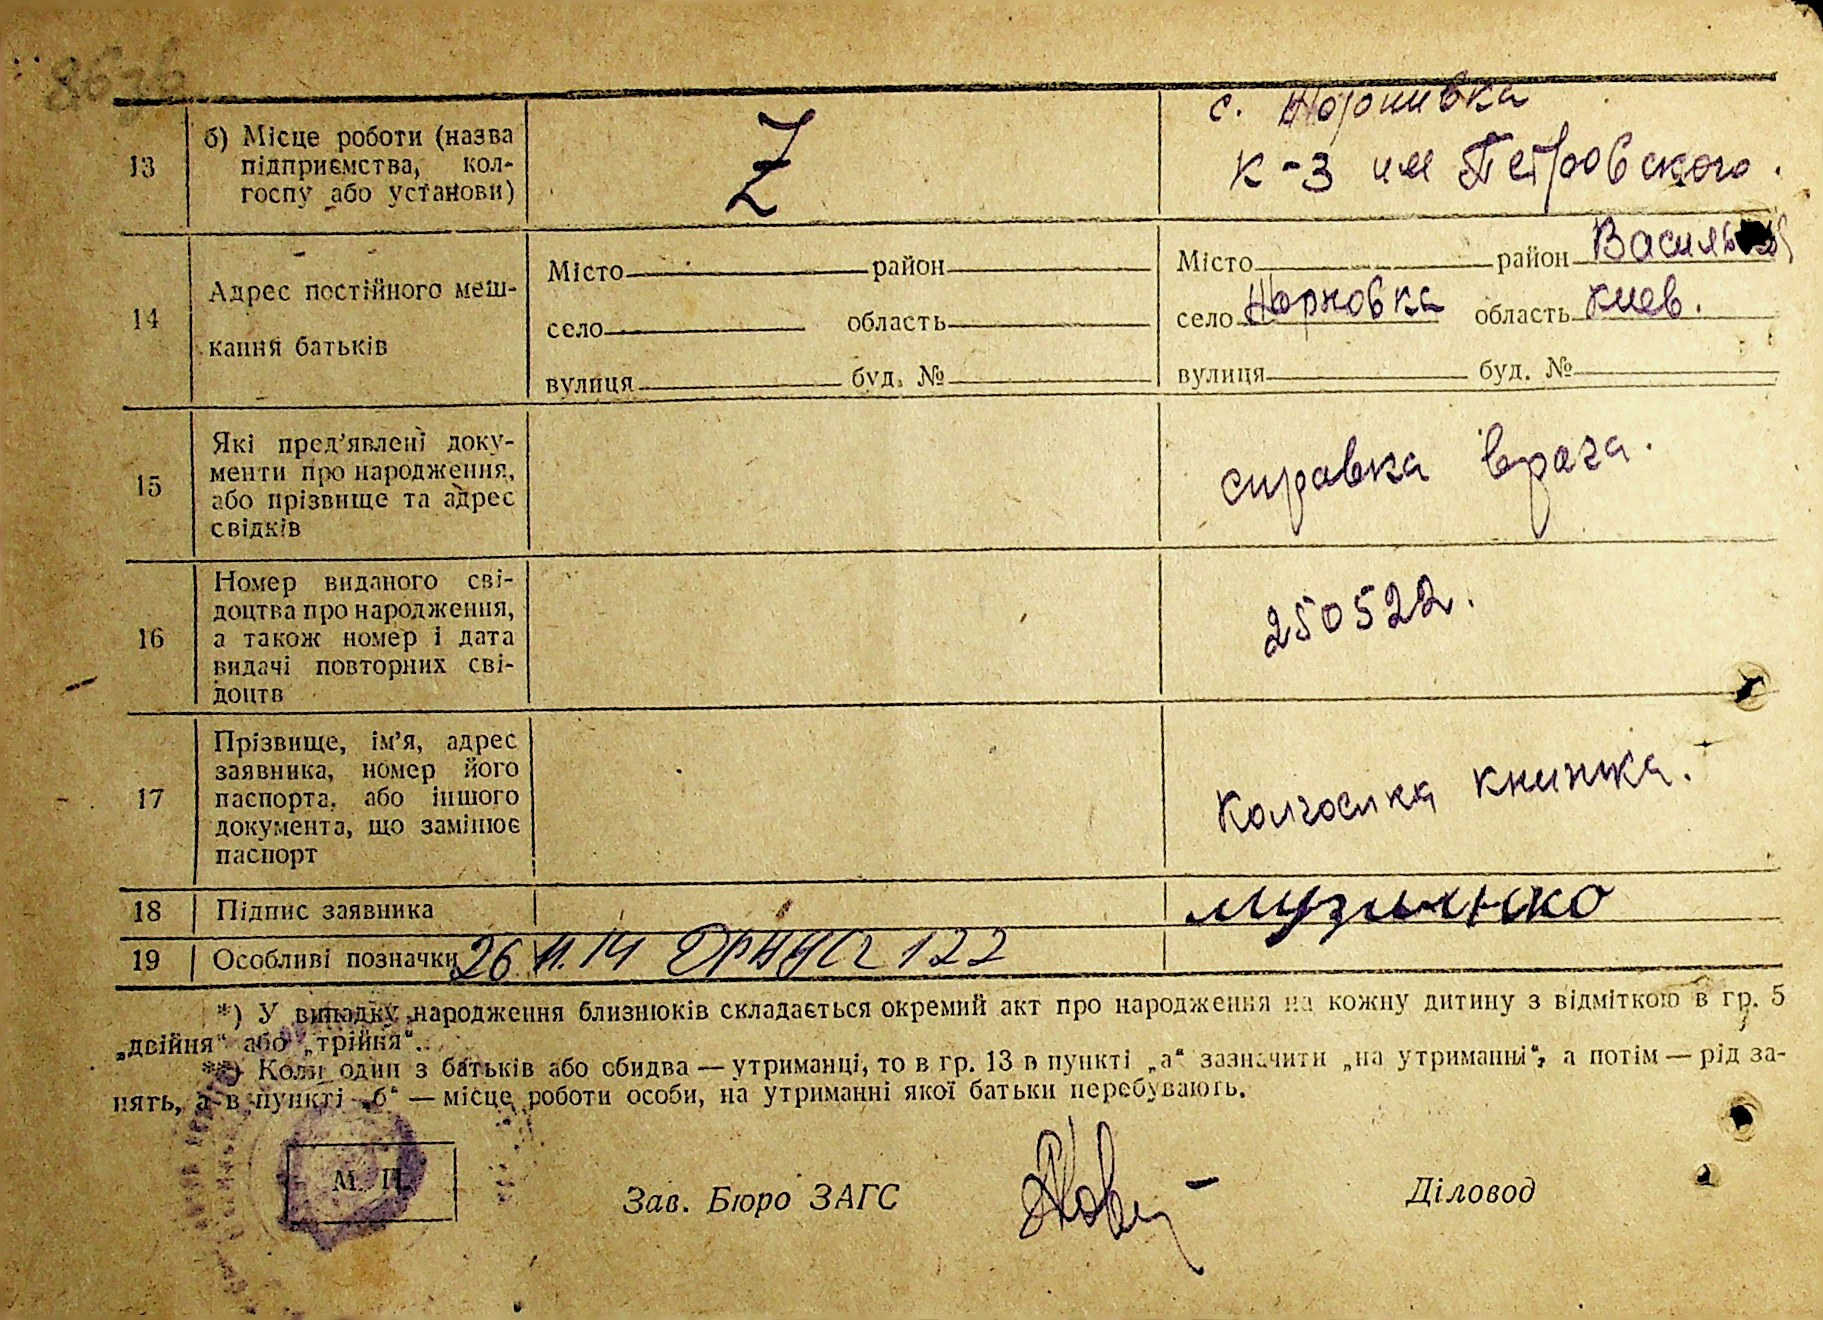 13
б) Місце роботи (назва
підприємства, кол-
госпу або установи)
Z
с. Жорнивка
к-з им Петровского.
14
Адрес постійного меш-
кання батьків
Місто район
село область
вулиця буд. №
Місто район Васильк
село Жорновка область Киев.
вулиця буд. №
15
Які пред'явлені доку-
менти про народження,
або прізвище та адрес
свідків
справка врача.
16
Номер виданого сві-
доцтва про народження,
а також номер і дата
видачі повторних сві-
доцтв
250522.
17
Прізвище, ім'я, адрес
заявника, номер його
паспорта, або іншого
документа, що замінює
паспорт
Колгоспна книжка.
18 Підпис заявника
19 Особливі позначки 26 11.14 122
*) У випадку народження близнюків складається окремий акт про народження на кожну дитину з відміткою в гр. 5
„двійня“ або „трійня“.
**) Коли один з батьків або обидва — утриманці, то в гр. 13 в пункті „а“ зазначити „на утриманні“, а потім — рід за-
нять, а в пункті „б“ — місце роботи особи, на утриманні якої батьки перебувають.
М. П.
Зав. Бюро ЗАГС
Діловод